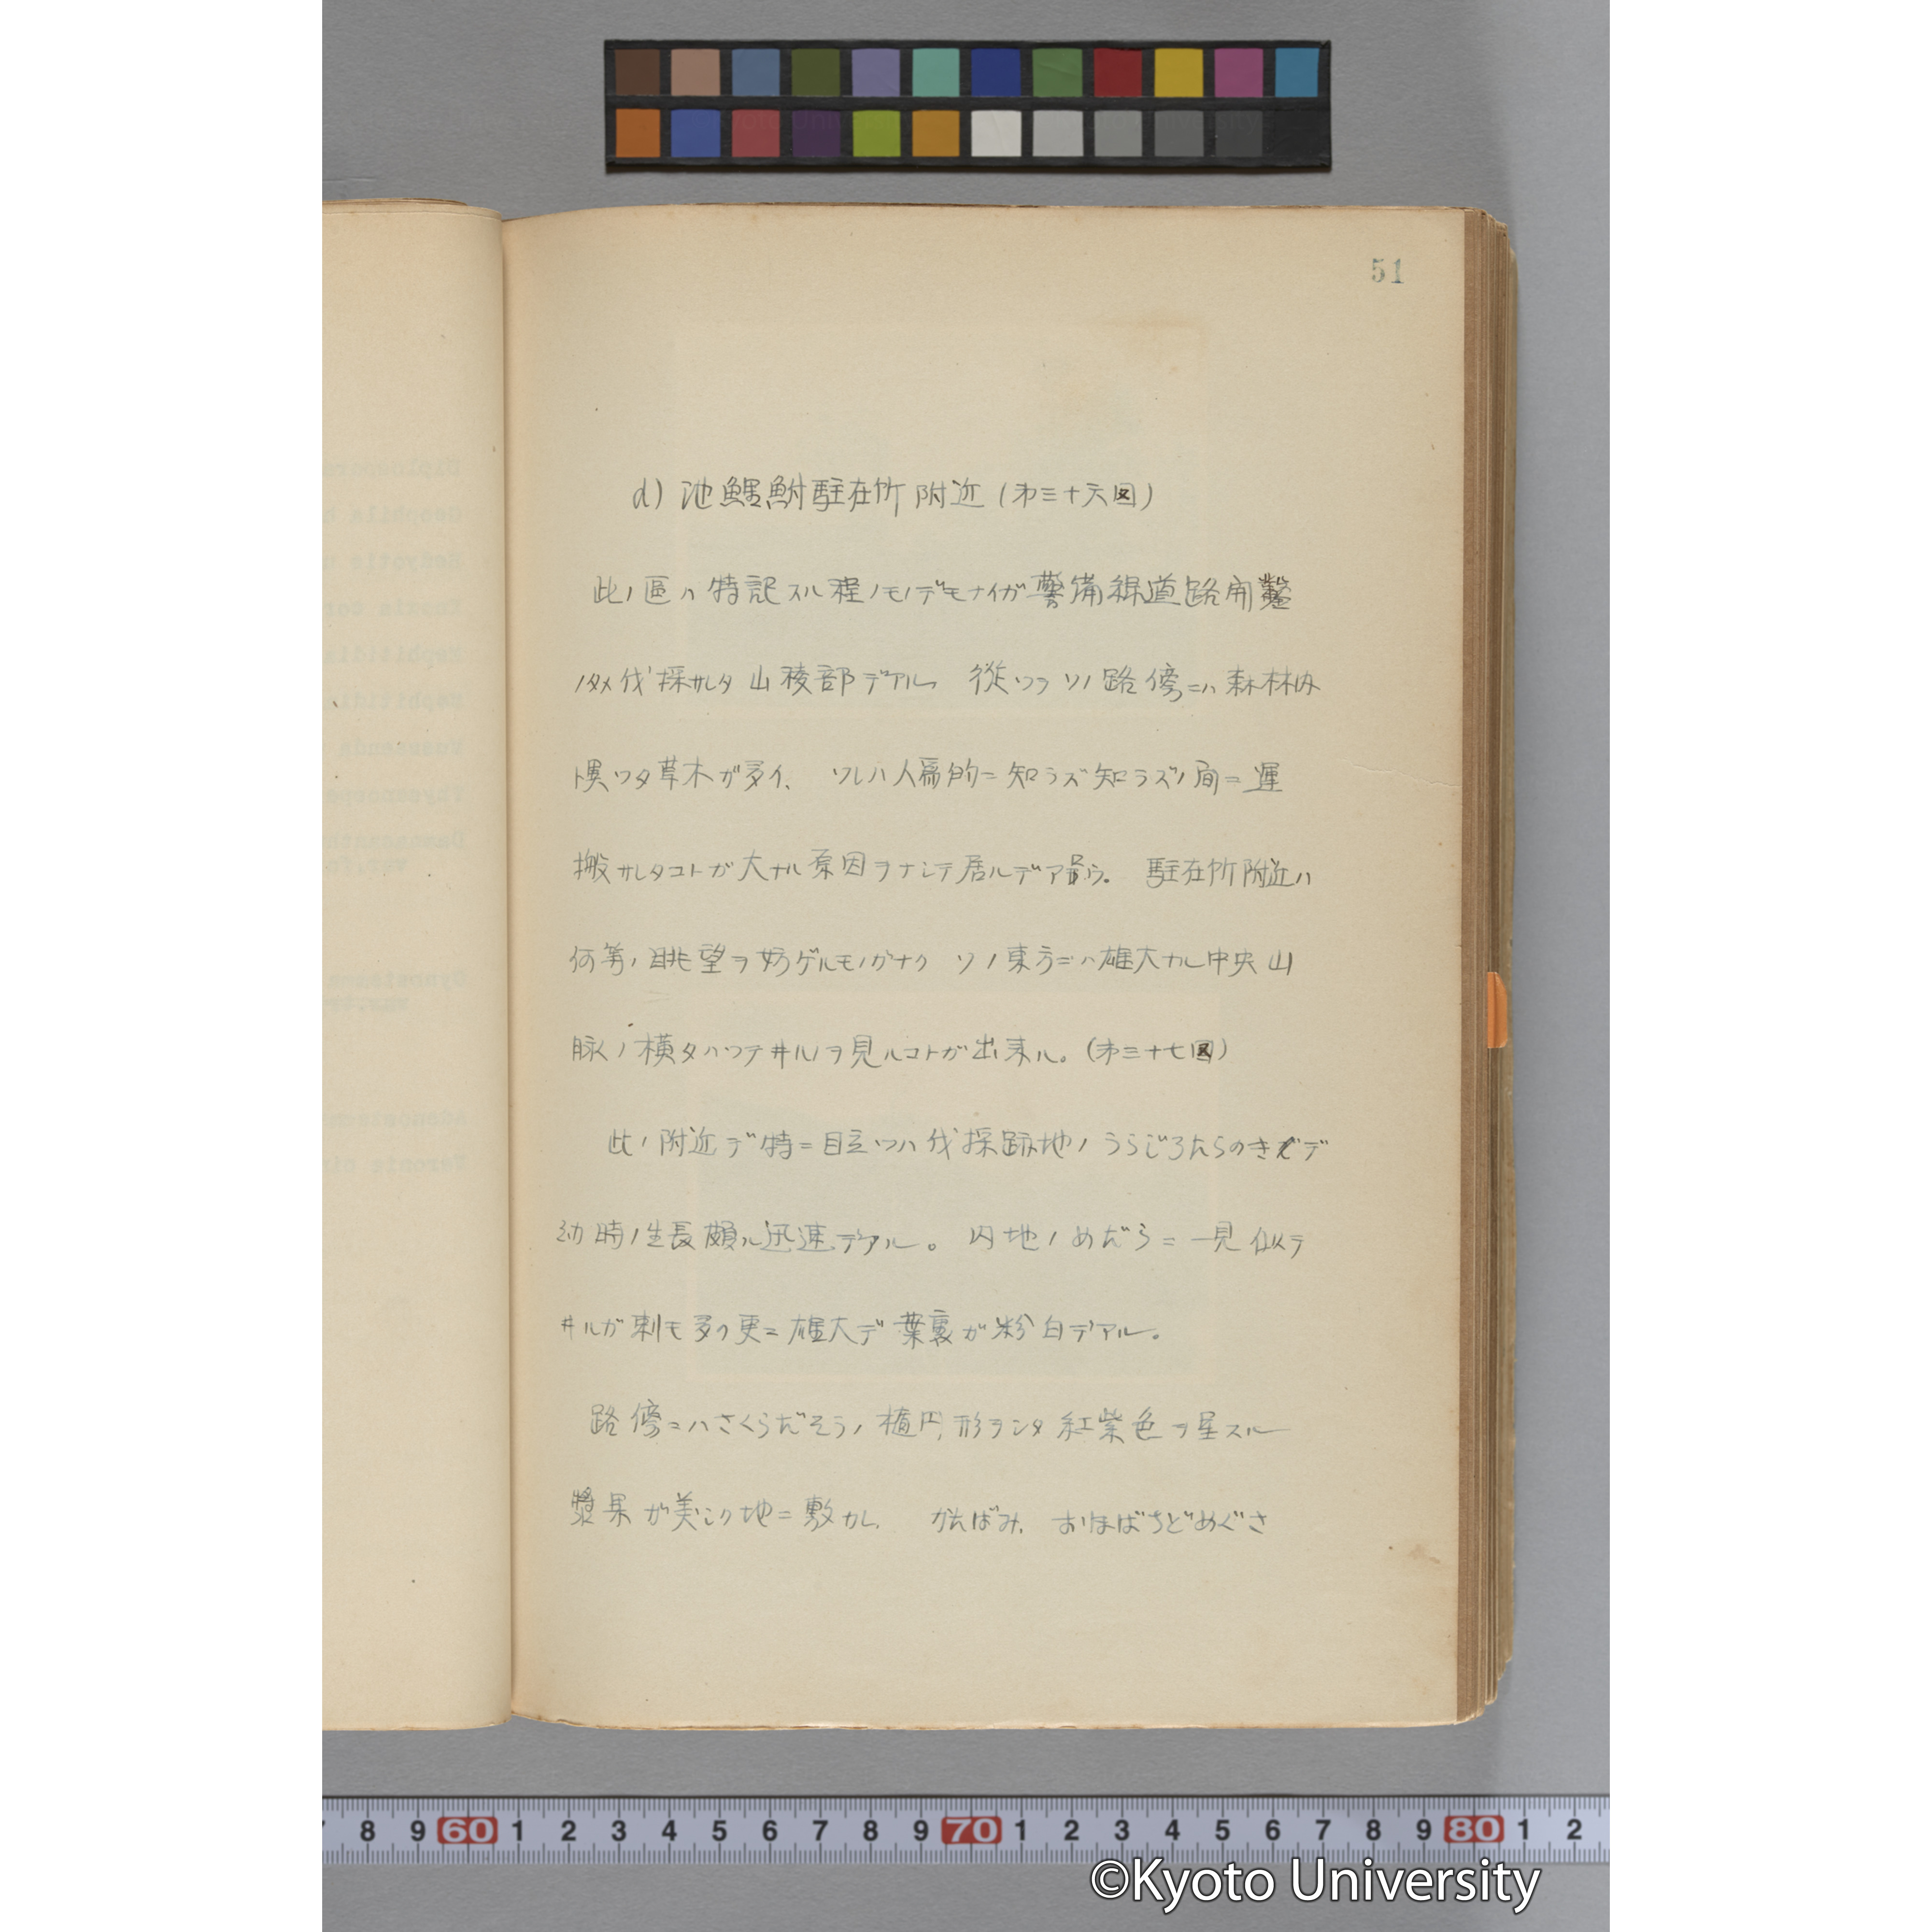 51
d) 池鯉鮒駐在所附近 (第三十六図)
此ノ區ハ特記スル程ノモノデモナイガ警備線道路開鑿
ノタメ伐採サレタ山稜部デアル 従ツテソノ路傍ニハ森林内
ト異ツタ草木ガ多イ、 ソレハ人為的ニ知ラズ知ラズノ間ニ運
搬サレタコトガ大ナル原因ヲナシテ居ルデアラウ。 駐在所附近ハ
何等ノ眺望ヲ妨ゲルモノガナク ソノ東方ニハ雄大ナル中央山
脉ノ横タハツテヰルノヲ見ルコトガ出来ル。(第三十七図)
此ノ附近デ特ニ目立ツハ伐採跡地ノうらじろたらのきデ
幼時ノ生長頗ル迅速デアル。 内地ノめだらニ一見似テ
ヰルガ刺モ多ク更ニ雄大デ葉裏ガ粉白デアル。
路傍ニハさくらだそうノ楕円形ヲシタ紅紫色ヲ呈スル
漿果ガ美シク地ニ敷カレ、 がくばみ、 おほばちどめぐさ
7 8 9 60 1 2 3 4 5 6 7 8 9 70 1 2 3 4 5 6 7 8 9 80 1 2
©Kyoto University